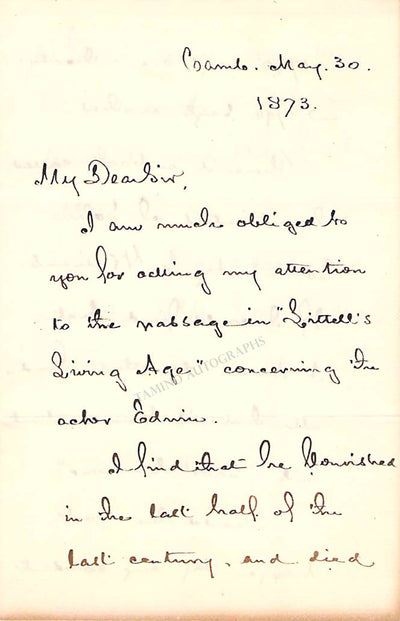 Camb. May. 30.
1873.
My Dear Sir,
I am much obliged to
you for calling my attention
to the passage in "Littell's
Living Age" concerning the
TAMINO AUTOGRAPHS
actor Edwin.
I find that he flourished
in the last half of the
last century, and died